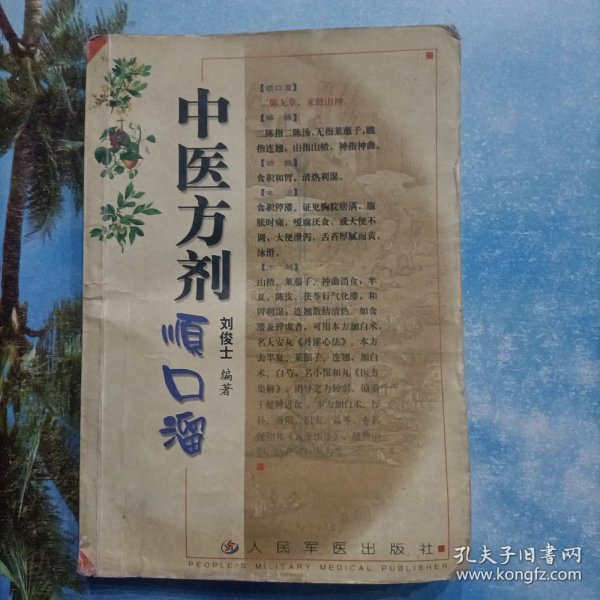 中医方剂
順口溜
刘俊士 编著
【顺口溜】
二陈无草，来瞧山神。
【解释】
二陈指二陈汤，无指莱菔子，瞧
指连翘，山指山楂，神指神曲。
【功效】
食积和胃，清热利湿。
【主治】
食积停滞。证见胸脘痞满，腹
胀时痛，嗳腐厌食，或大便不
调，大便溏泻，舌苔厚腻而黄，
脉滑。
【方解】
山楂、莱菔子、神曲消食；半
夏、陈皮、茯苓行气化滞，和
胃利湿；连翘散结清热。如食
滞兼脾虚者，可用本方加白术，
名大安丸《丹溪心法》。本方
去半夏、莱菔子、连翘，加白
术、白芍，名小保和丸《医方
集解》。消导之力较弱，偏重
于健脾进食。本方加白术、厚
人民军医出版社
PEOPLE'S MILITARY MEDICAL PUBLISHER
孔夫子旧书网
www.kongfz.com